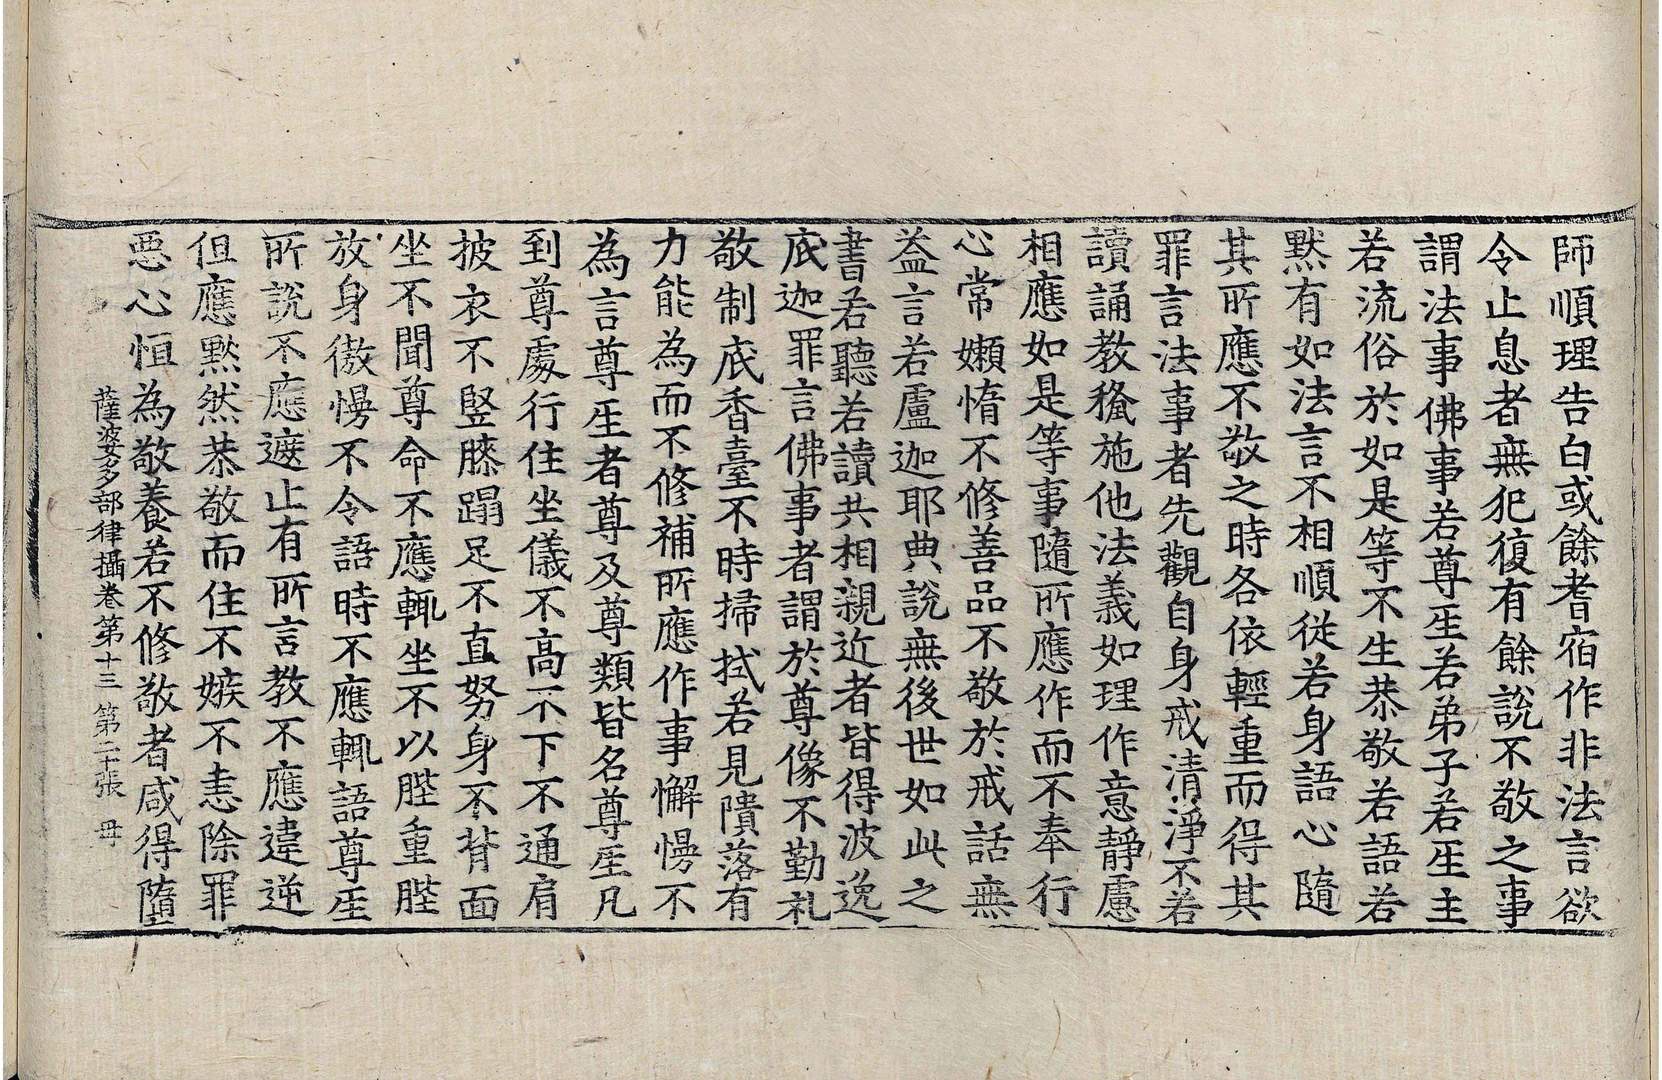 師順理告白或餘耆宿作非法言欲
令止息者無犯復有餘說不敬之事
謂法事佛事若尊𤯔若弟子若𤯔主
若流俗於如是等不生恭敬若語若
默有如法言不相順從若身語心隨
其所應不敬之時各依輕重而得其
罪言法事者先觀自身戒清淨不若
讀誦教授施他法義如理作意靜慮
相應如是等事隨所應作而不奉行
心常嬾惰不修善品不敬於戒話無
益言若盧迦耶典說無後世如此之
書若聽若讀共相親近者皆得波逸
底迦罪言佛事者謂於尊像不勤礼
敬制底香臺不時掃拭若見隤落有
力能為而不修補所應作事懈慢不
為言尊𤯔者尊及尊類皆名尊𤯔凡
到尊處行住坐儀不高不下不通肩
披衣不竪膝蹋足不直努身不背面
坐不聞尊命不應輒坐不以䏶重䏶
放身傲慢不令語時不應輒語尊𤯔
所說不應遮止有所言教不應違逆
但應默然恭敬而住不嫉不恚除罪
惡心恒為敬養若不修敬者咸得墮
薩婆多部律攝卷第十三 第二十張 毋